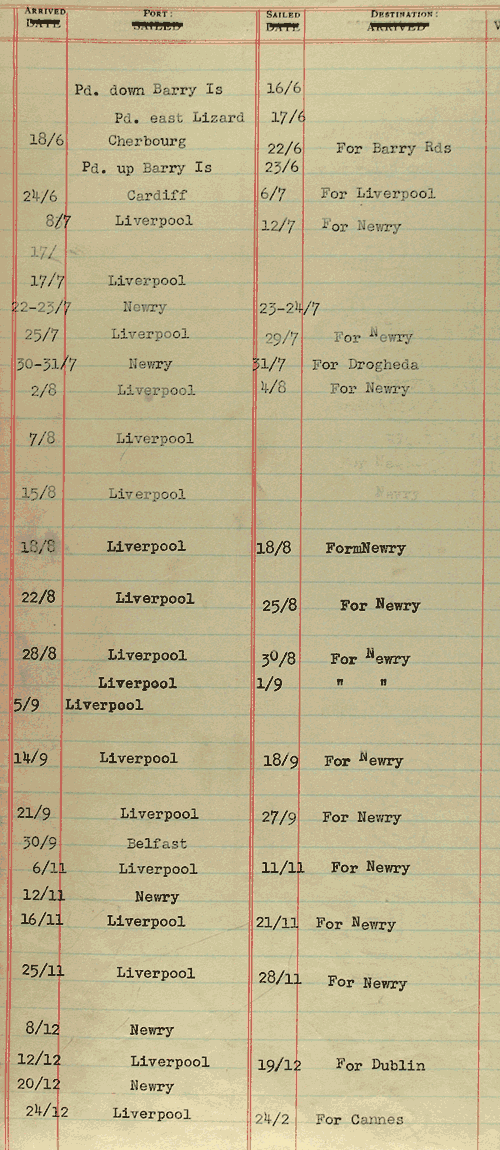 ARRIVED PORT: SAILED DESTINATION:
DATE SAILED DATE ARRIVED
Pd. down Barry Is 16/6
Pd. east Lizard 17/6
18/6 Cherbourg 22/6 For Barry Rds
Pd. up Barry Is 23/6
24/6 Cardiff 6/7 For Liverpool
8/7 Liverpool 12/7 For Newry
17/
17/7 Liverpool
22-23/7 Newry 23-24/7
25/7 Liverpool 29/7 For Newry
30-31/7 Newry 31/7 For Drogheda
2/8 Liverpool 4/8 For Newry
7/8 Liverpool
15/8 Liverpool Newry
18/8 Liverpool 18/8 FormNewry
22/8 Liverpool 25/8 For Newry
28/8 Liverpool 30/8 For Newry
Liverpool 1/9 " "
5/9 Liverpool
14/9 Liverpool 18/9 For Newry
21/9 Liverpool 27/9 For Newry
30/9 Belfast
6/11 Liverpool 11/11 For Newry
12/11 Newry
16/11 Liverpool 21/11 For Newry
25/11 Liverpool 28/11 For Newry
8/12 Newry
12/12 Liverpool 19/12 For Dublin
20/12 Newry
24/12 Liverpool 24/2 For Cannes